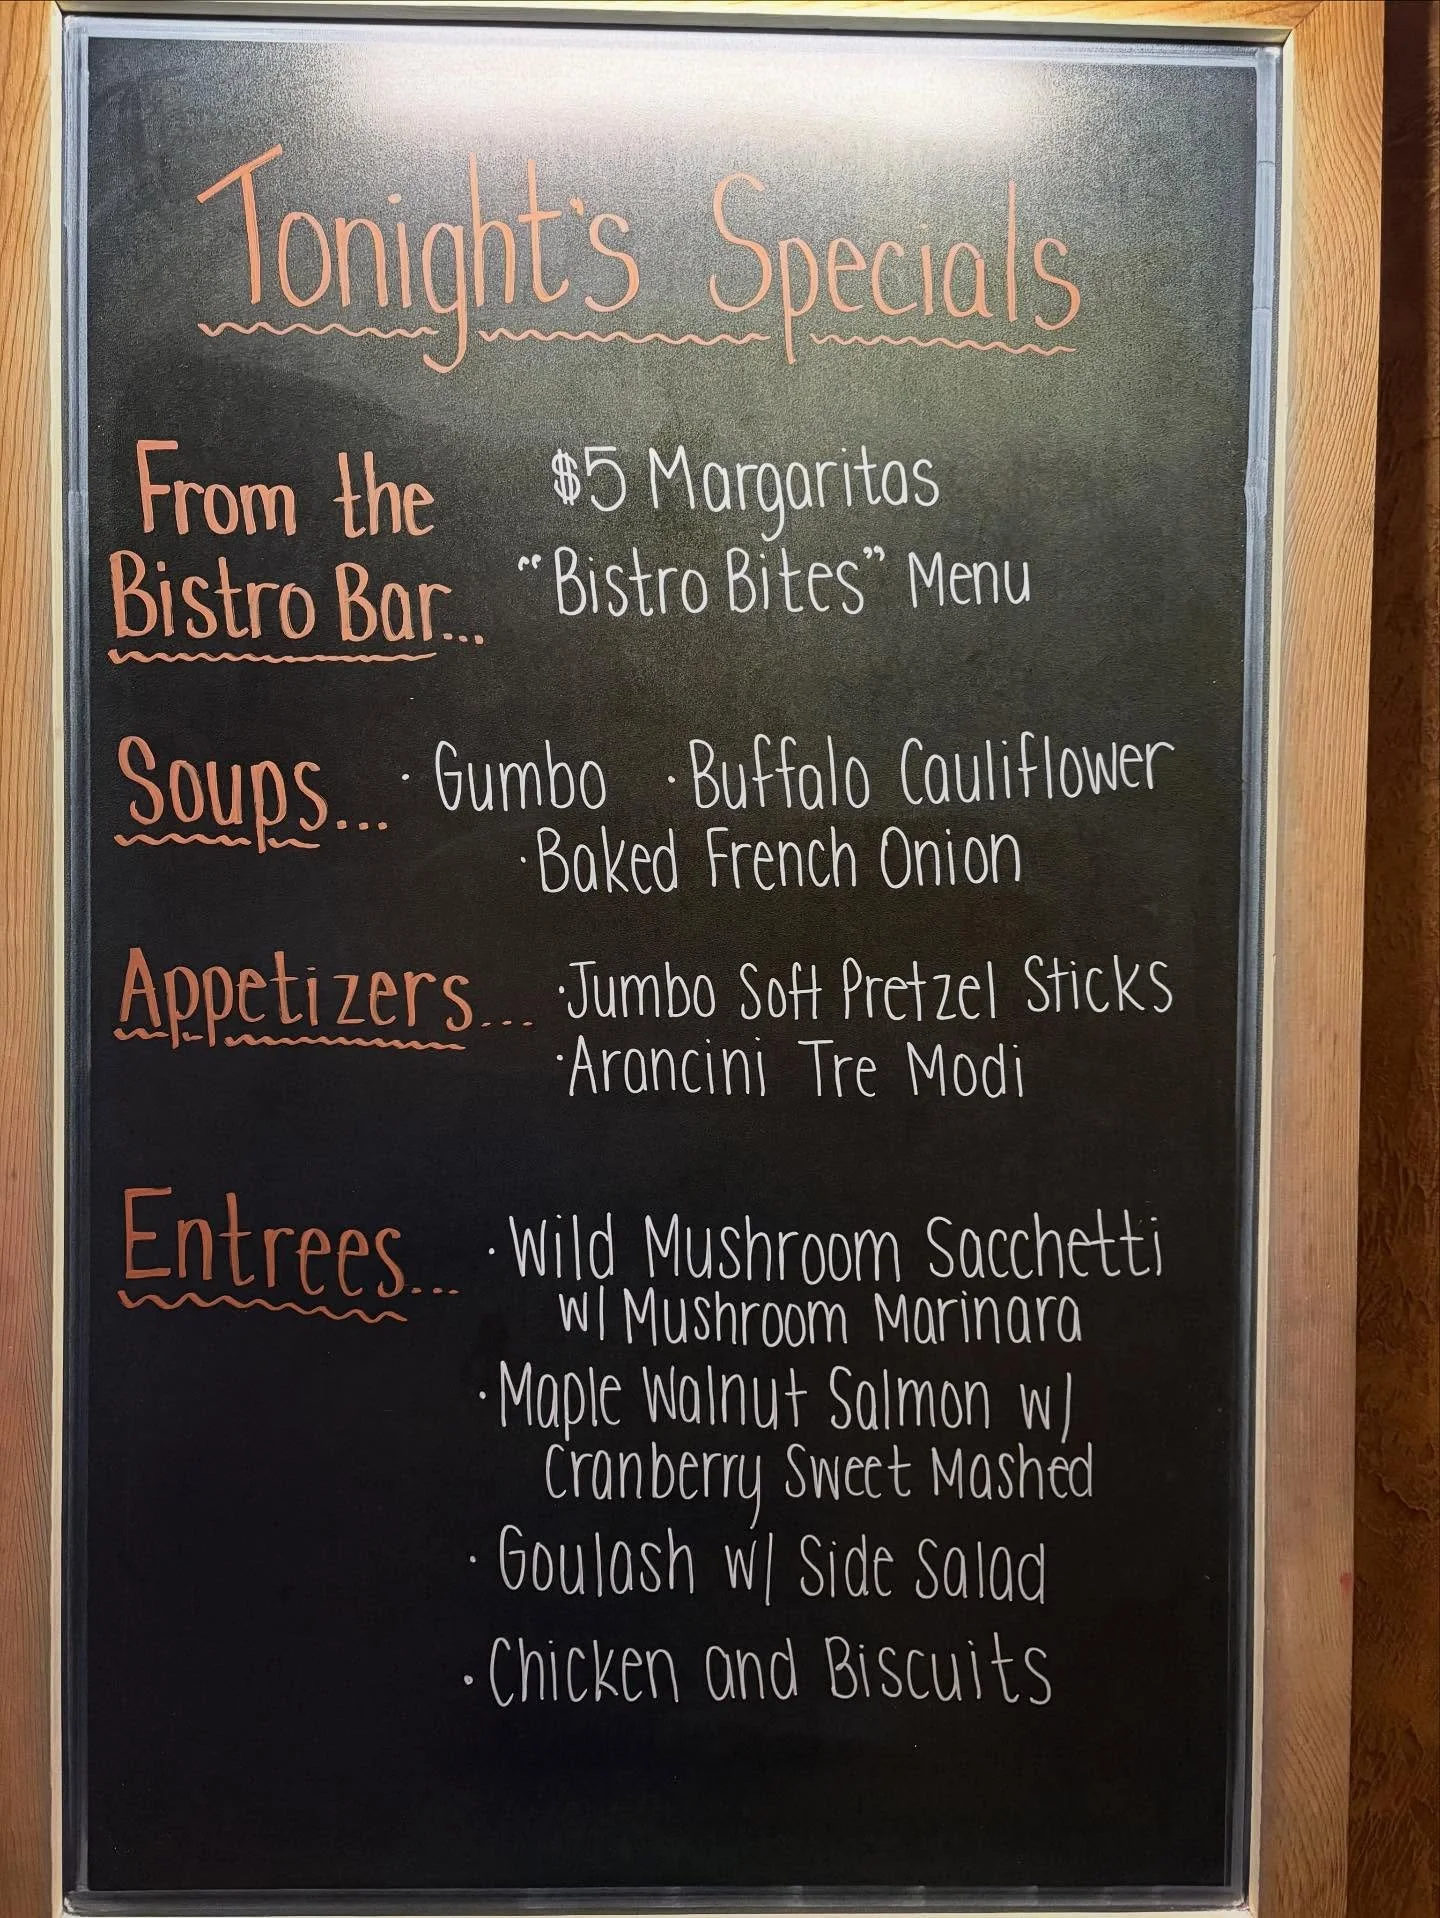 Tonight's Specials
From the
Bistro Bar...
$5 Margaritas
"Bistro Bites" Menu
Soups... · Gumbo · Buffalo Cauliflower
· Baked French Onion
Appetizers... · Jumbo Soft Pretzel Sticks
· Arancini Tre Modi
Entrees... · Wild Mushroom Sacchetti
w/ Mushroom Marinara
· Maple Walnut Salmon w/
Cranberry Sweet Mashed
· Goulash w/ Side Salad
· Chicken and Biscuits